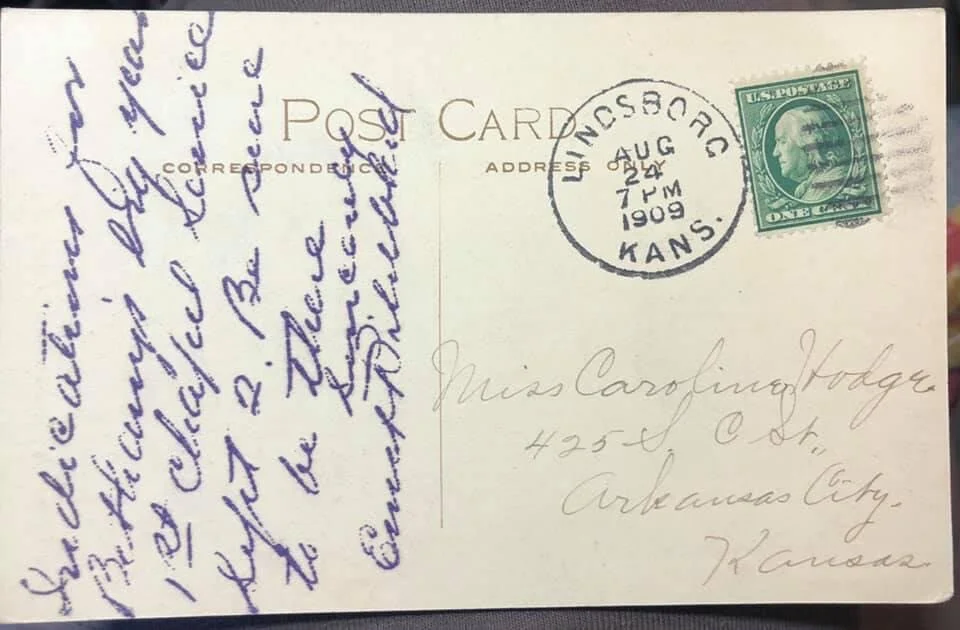 POST CARD
CORRESPONDENCE
ADDRESS ONLY
Indications for
Bethany's big year
1st chapel service
Sept 2. Be sure
to be there
Sincerely
Ernst
LINDSBORG
AUG
24
7 PM
1909
KANS.
U.S. POSTAGE
ONE CENT
Miss Caroline Hodge
425 S. C St.,
Arkansas City.
Kansas